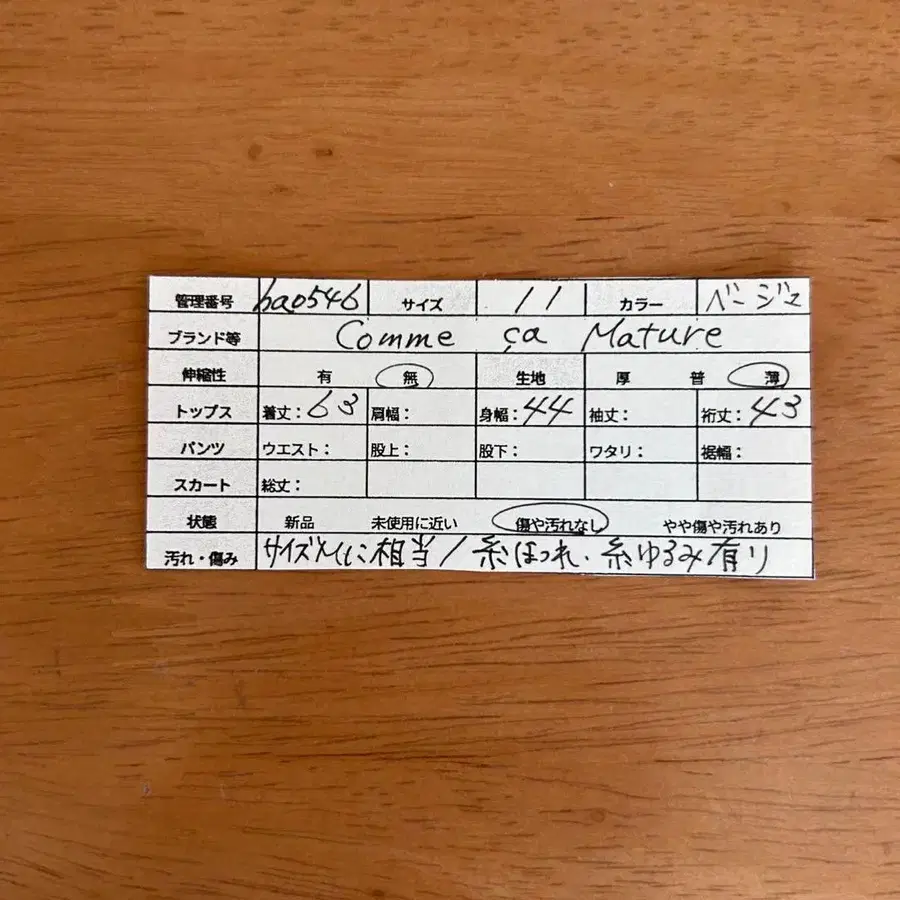 管理番号 ha0546 サイズ 11 カラー ベージュ
ブランド等 Comme ça Mature
伸縮性 有 無 生地 厚 普 薄
トップス 着丈：63 肩幅： 身幅：44 袖丈： 裄丈：43
パンツ ウエスト： 股上： 股下： ワタリ： 裾幅：
スカート 総丈：
状態 新品 未使用に近い 傷や汚れなし やや傷や汚れあり
汚れ・傷み サイズMに相当/糸ほつれ、糸ゆるみ有り